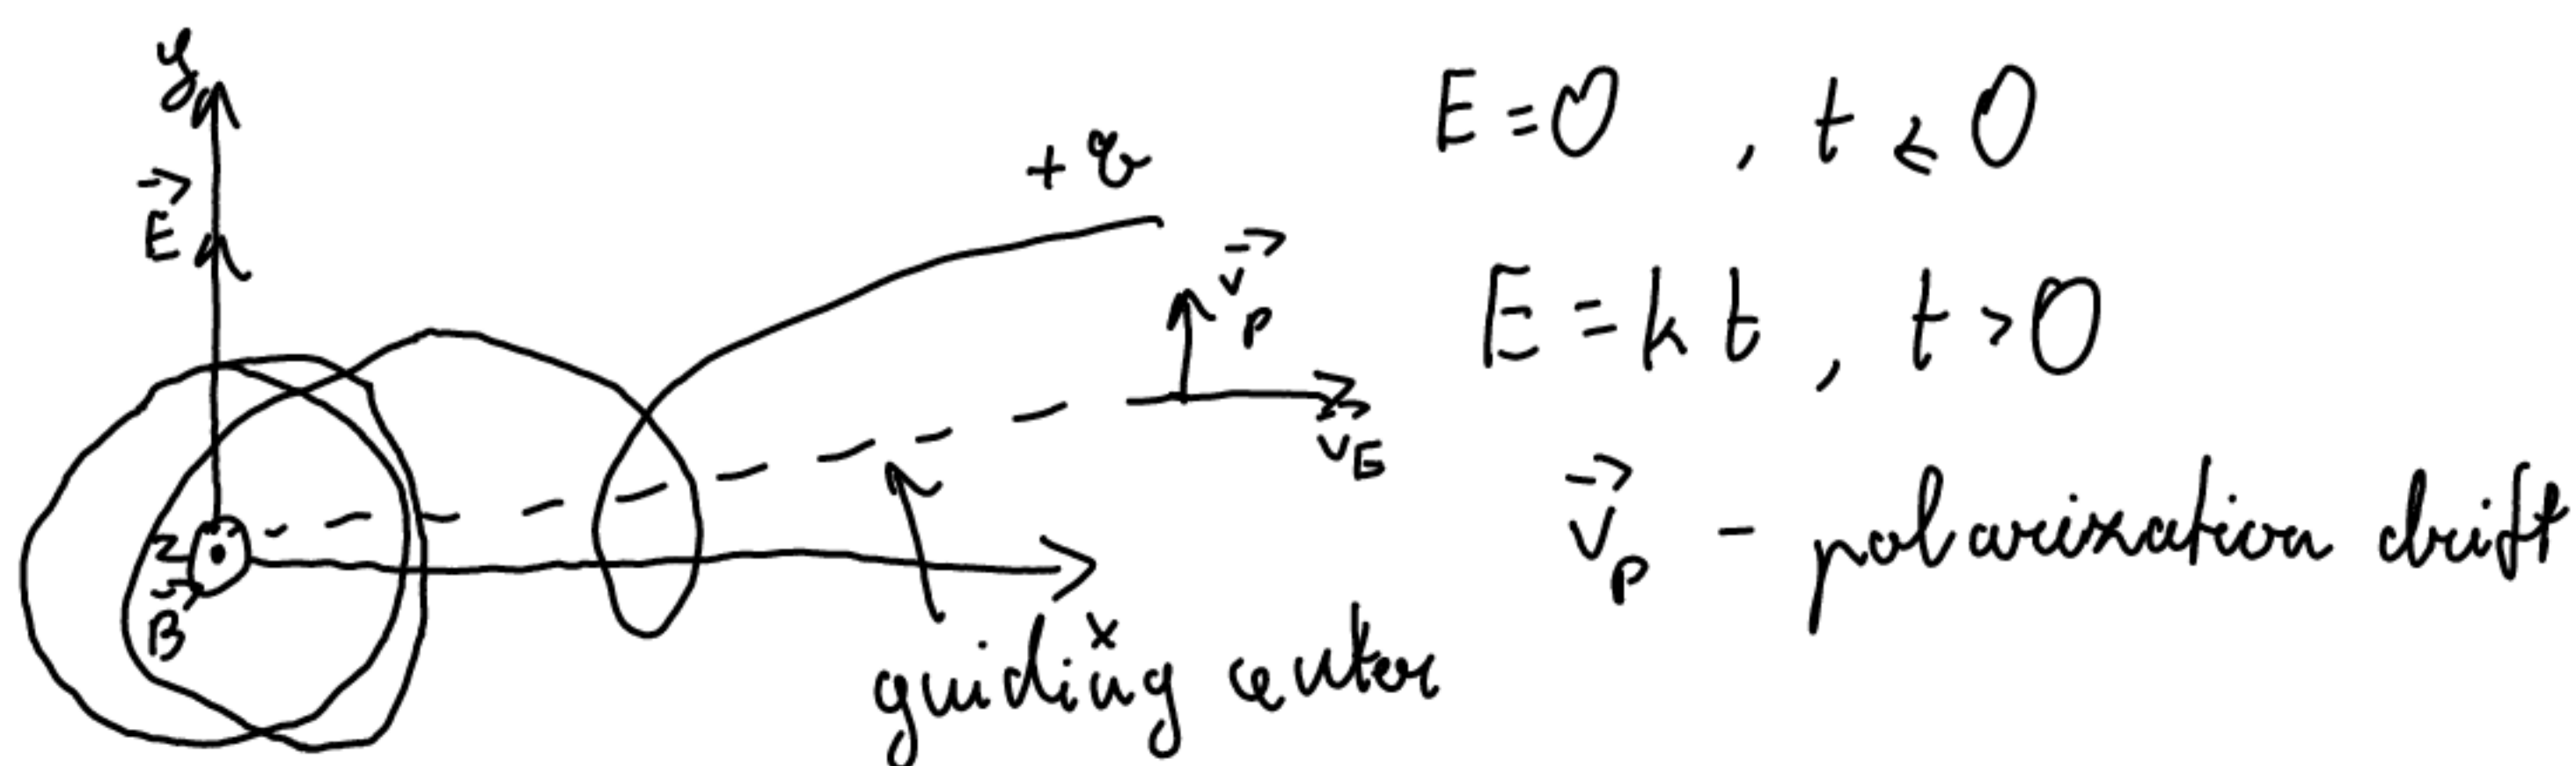 y
E⃗
z
B⃗
x
+q
v⃗_p
v⃗_E
guiding center
E = 0 , t ≤ 0
E = k t , t > 0
v⃗_p – polarization drift